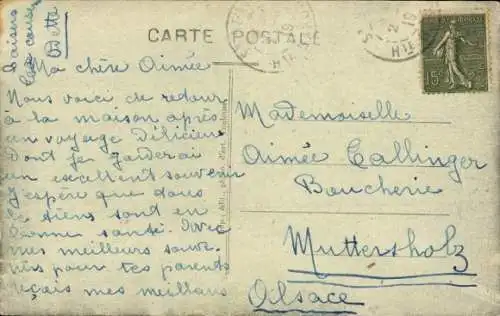 CARTE POSTALE
Ma chère Aimée
Nous voici de retour
à la maison après
un voyage Délicieux
Dont je garderai
un excellent souvenir
J'espère que tous
les tiens sont en
bonne santé. Avec
mes meilleurs souve
nirs pour tes parents
reçois mes meillurs
Baisers
cousine
Dette
Mademoiselle
Aimée Callinger
Boucherie
Muttersholz
Alsace
15